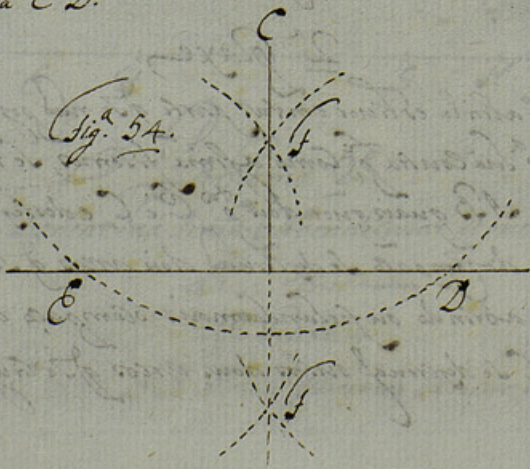 a C D.
C
fig.ª 54.
f
E
D
f